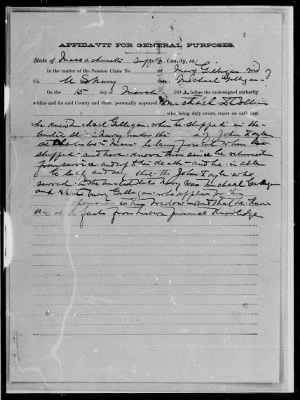 AFFIDAVIT FOR GENERAL PURPOSES.
State of Massachusetts Suffolk County, ss:
In the matter of the Pension Claim No. of Mary Gilligan wid of
Co. U.S. Navy Michael Gilligan
On the 15 day of March 189, before the undersigned authority
within and for said County and State, personally appeared Michael Collins
who, being duly sworn, states as said that
he knew Michael Gilligan when he shipped in the
United States Navy under the name of John
at Mass he being present when he
shipped and have known him since he returned
from service and up to his death and he is able
to and say that the John who
served in the United States Navy was Michael Gilligan
and Mary Gilligan who applies for
pension is his widow and that he knows
these facts from his own personal knowledge